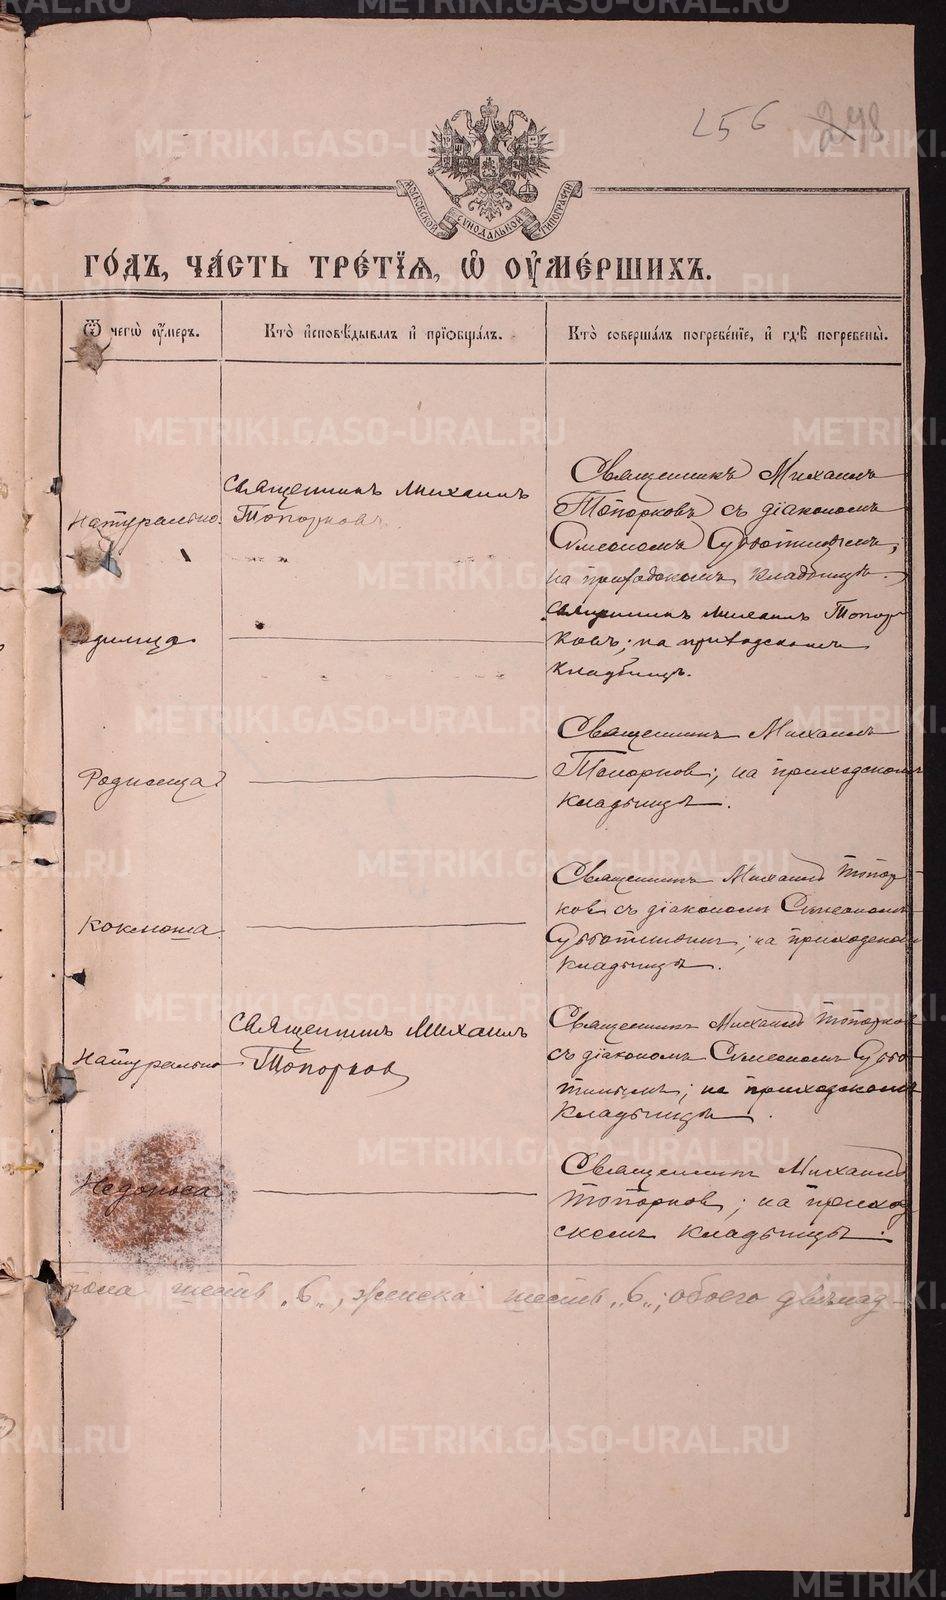 256 248
МОСКОВСКОЙ СѴНОДАЛЬНОЙ ТИПОГРАФІИ
ГО́ДЪ, ЧА́СТЬ ТРЕ́ТІѦ, Ѡ҆ ОУ҆МЕ́РШИХЪ.
Ѿ чегѡ̀ оу҆́меръ.
Кто̀ и҆сповѣ́дывалъ и҆ прїѡбща́лъ.
Кто̀ соверша́лъ погребе́нїе, и҆ гдѣ̀ погребены̀.
Натурально.
Священникъ Михаилъ
Топорковъ.
Священникъ Михаилъ
Топорковъ съ діакономъ
Симеономъ Субботинымъ,
на приходскомъ кладбищѣ.
Священникъ Михаилъ Топор
ковъ; на приходскомъ
кладбищѣ.
Родимца
Священникъ Михаилъ
Топорков; на приходскомъ
кладбищѣ.
Коклюша
Священникъ Михаилъ Топор
ков съ діакономъ Симеономъ
Субботинымъ; на приходском
кладбищѣ.
Натурально
Священникъ Михаилъ
Топорков
Священникъ Михаилъ Топорков
съ діакономъ Симеономъ Суббо
тинымъ; на приходскомъ
кладбищѣ.
Недоноса
Священникъ Михаилъ
Топорков; на приход
скомъ кладбищѣ.
пола шесть „6„, женска шесть „6„; обоего двѣнад
METRIKI.GASO-URAL.RU